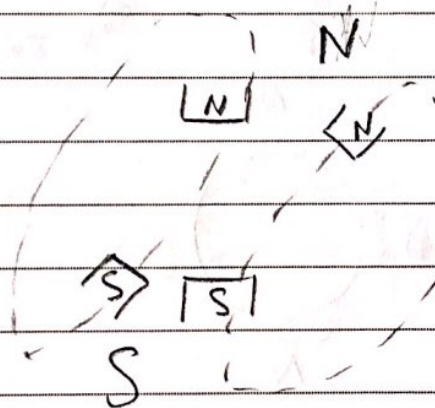 N
N
N
S
S
S